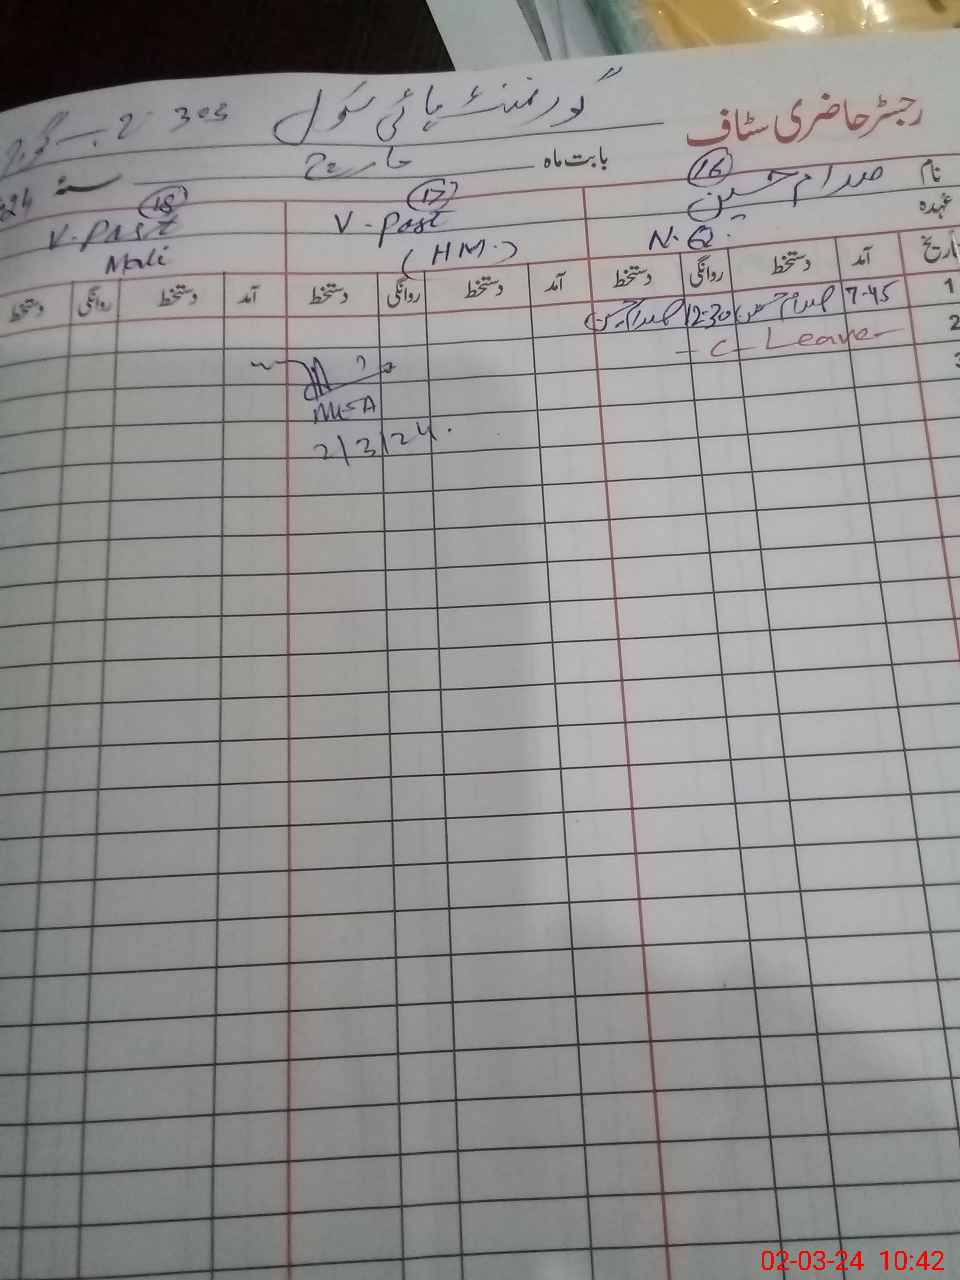 رجسٹر حاضری سٹاف گورنمنٹ ہائی سکول 303
بابت ماہ مارچ سنہ 24
نام (16) صدام حسین (17) V-Post (18) V-Post
عہدہ N.Q. (HM.) Mali
تاریخ آمد دستخط روانگی دستخط آمد دستخط روانگی دستخط آمد دستخط روانگی دستخط
1 7-45 صدام حسین 12-30 صدام حسین
2 - C - Leave -
3
2/3/24.
02-03-24 10:42